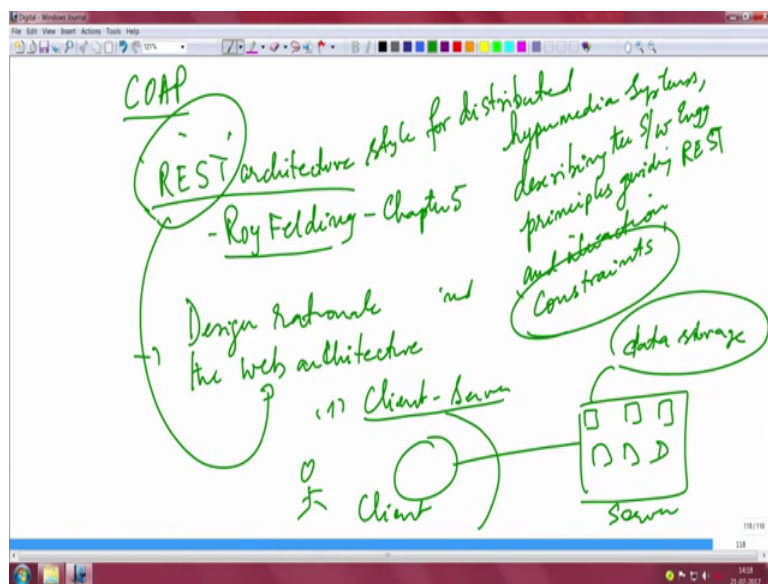 Digital - Windows Journal
File Edit View Insert Actions Tools Help
121%
COAP
REST architecture style for distributed
hypermedia systems,
describing the S/W Engg
principles guiding REST
- Roy Felding - Chapter 5
constraints
Design rationale
the web architecture
data storage
(1) Client-Server
Client
Server
118/118
118
14:18
21-07-2017